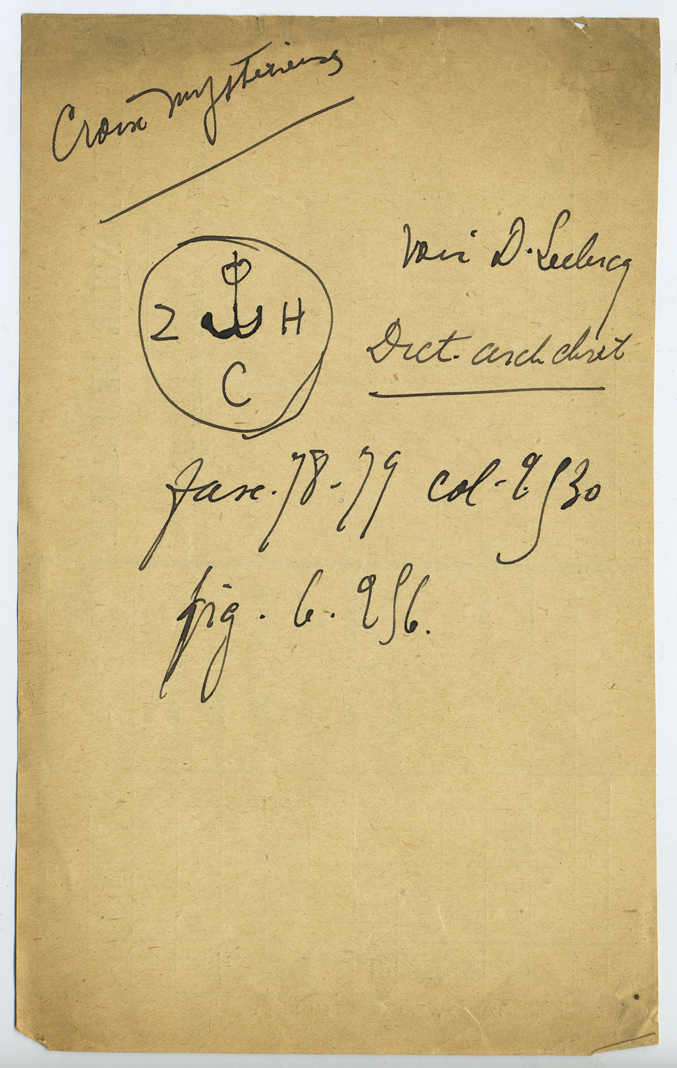 Croix mystérieus
Voir D. Leclercq
Z H
C
Dict. arch. chret
fasc. 78-79 col. 2530
fig. 6.256.